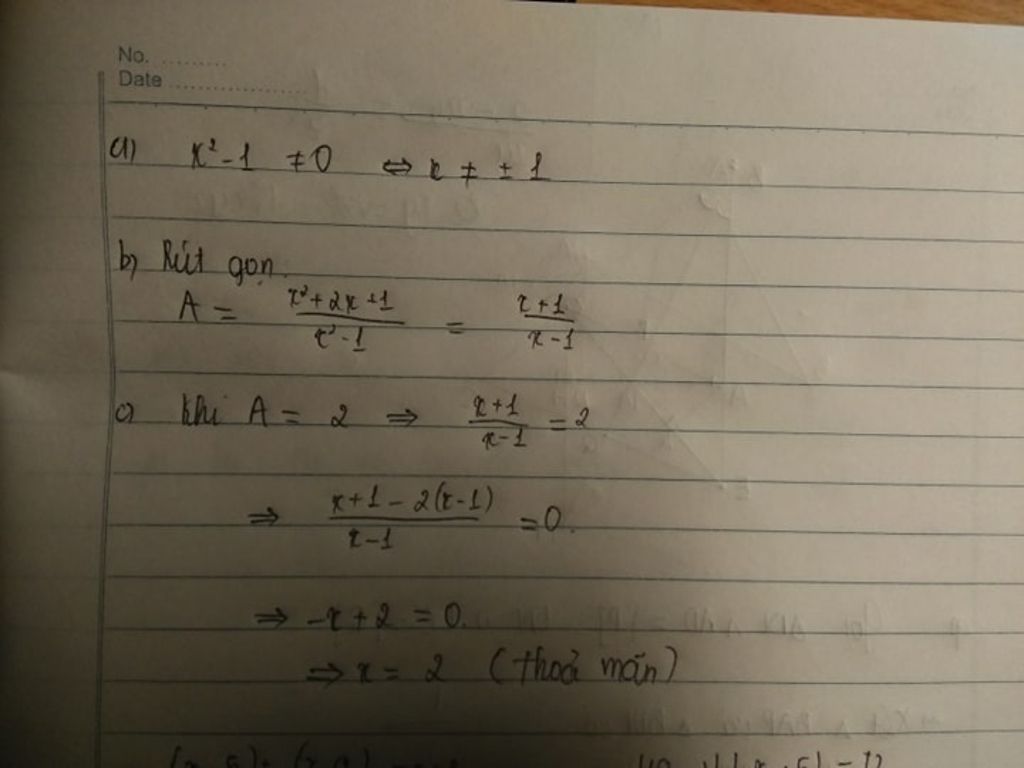 No. ..........
Date ......................
a) x² - 1 ≠ 0 ⇔ x ≠ ± 1
b) Rút gọn.
A = (x² + 2x + 1)/(x² - 1) = (x + 1)/(x - 1)
c) khi A = 2 ⇒ (x + 1)/(x - 1) = 2
⇒ (x + 1 - 2(x - 1))/(x - 1) = 0.
⇒ -x + 2 = 0.
⇒ x = 2 (thoả mãn)